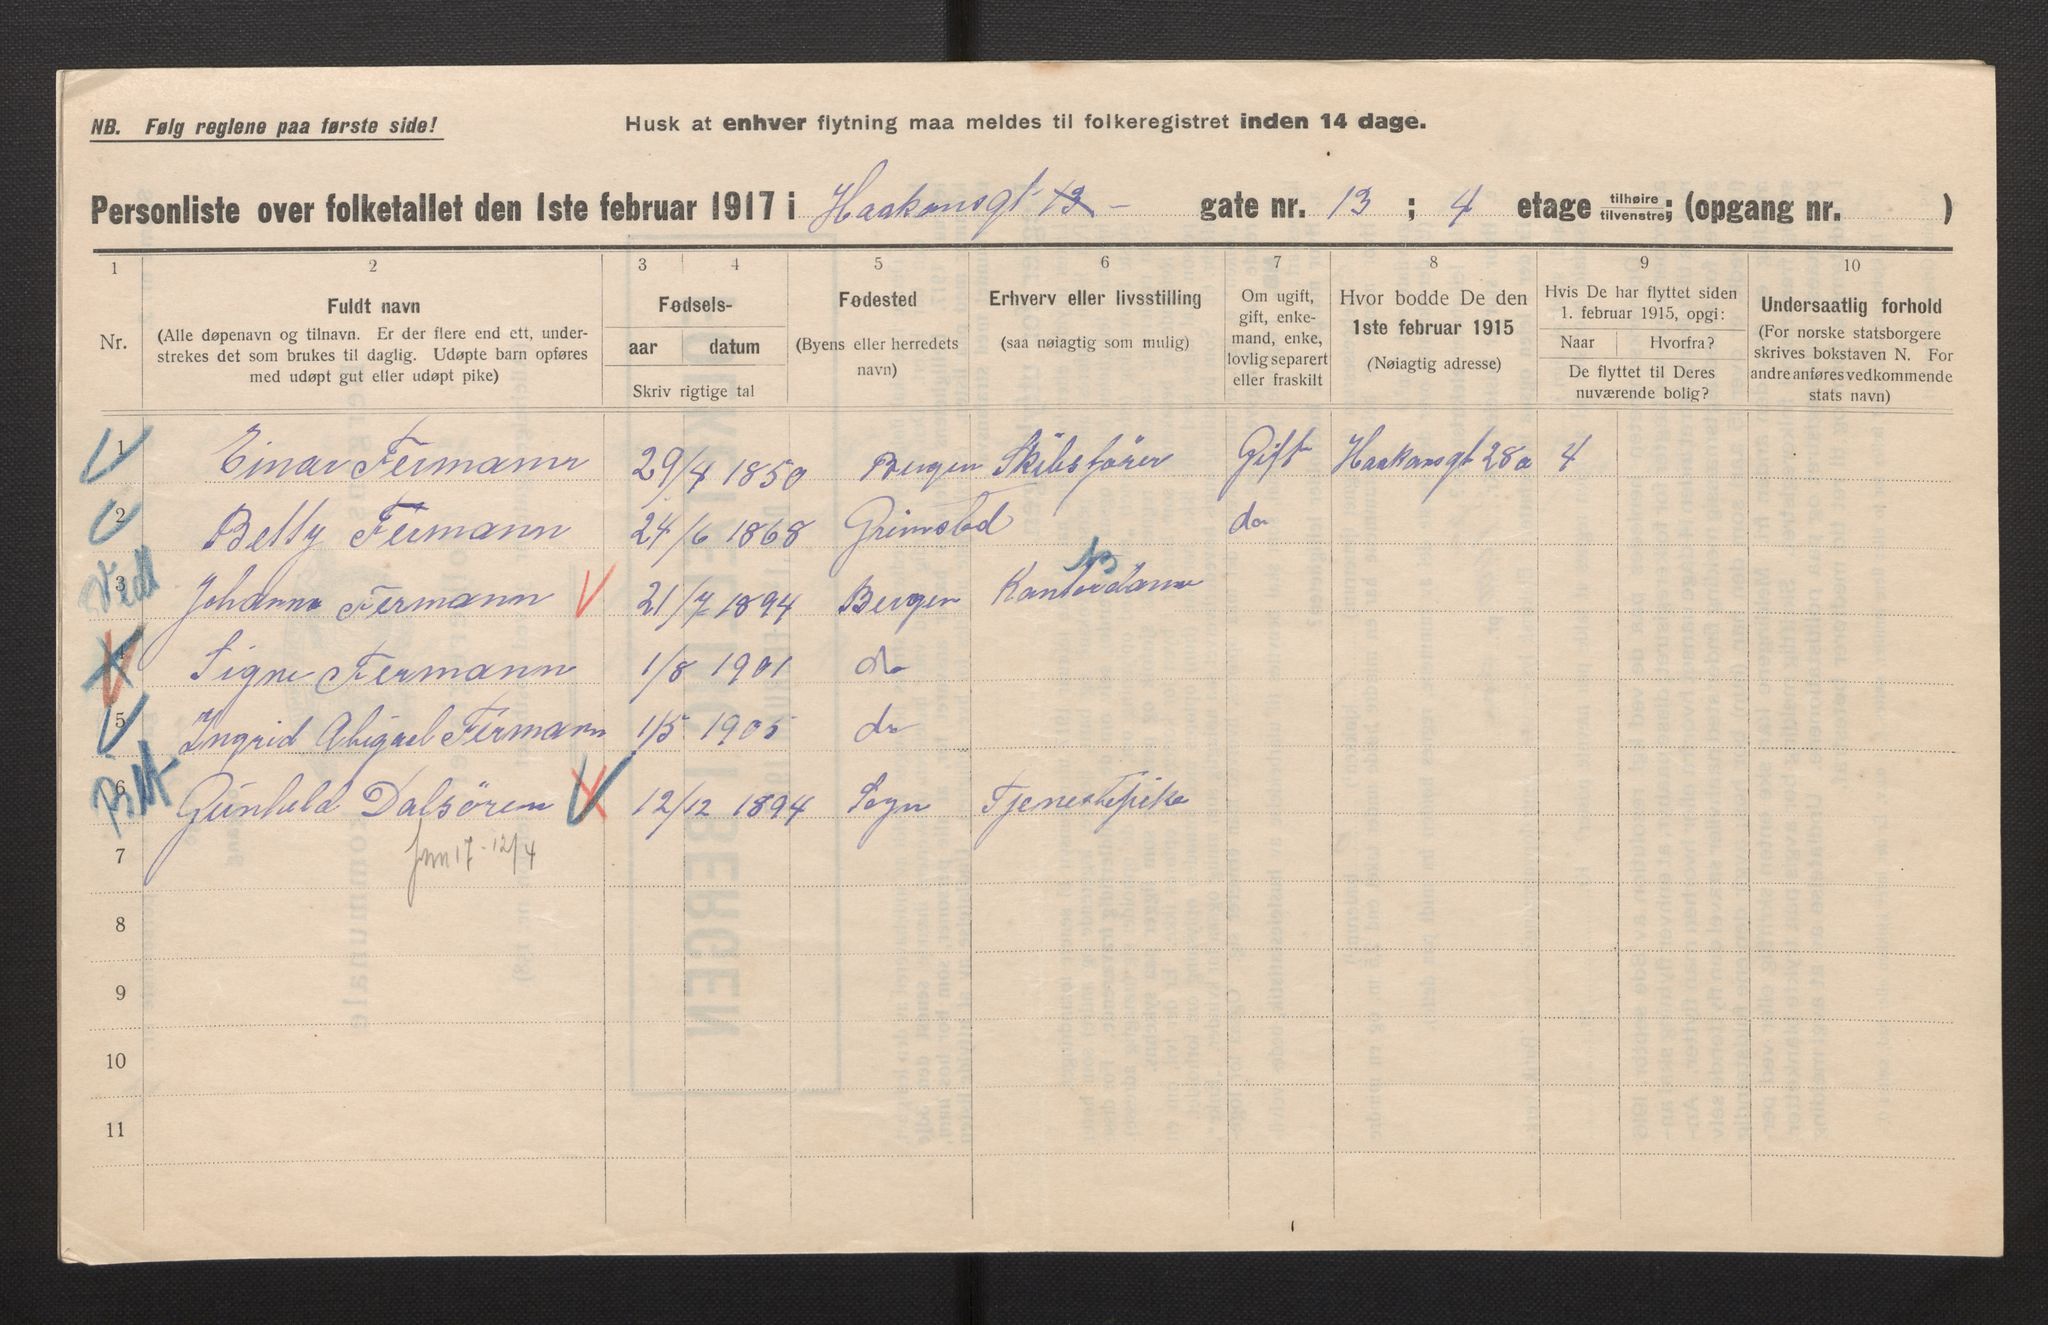 NB. Følg reglene paa første side!
Husk at enhver flytning maa meldes til folkeregistret inden 14 dage.
Personliste over folketallet den 1ste februar 1917 i Haakonsgt 13 - gate nr. 13 ; 4 etage tilhøire tilvenstre; (opgang nr. )
1 2 3 4 5 6 7 8 9 10
Nr.
Fuldt navn
(Alle døpenavn og tilnavn. Er der flere end ett, under-
strekes det som brukes til daglig. Udøpte barn opføres
med udøpt gut eller udøpt pike)
Fødsels-
aar datum
Skriv rigtige tal
Fødested
(Byens eller herredets
navn)
Erhverv eller livsstilling
(saa nøiagtig som mulig)
Om ugift,
gift, enke-
mand, enke,
lovlig separert
eller fraskilt
Hvor bodde De den
1ste februar 1915
(Nøiagtig adresse)
Hvis De har flyttet siden
1. februar 1915, opgi:
Naar Hvorfra?
De flyttet til Deres
nuværende bolig?
Undersaatlig forhold
(For norske statsborgere
skrives bokstaven N. For
andre anføres vedkommende
stats navn)
1 Einar Fermann 29/4 1850 Bergen Skibsfører Gift Haakonsgt 28a 4
2 Betty Fermann 24/6 1868 Grimstad do
3 Johanne Fermann 21/7 1894 Bergen Kontordame
4 Signe Fermann 1/8 1901 do
5 Ingrid Abigael Fermann 1/5 1905 do
6 Gunhild Dalsören 12/12 1894 Sogn Tjenestepike
7 17 - 12/4
8
9
10
11